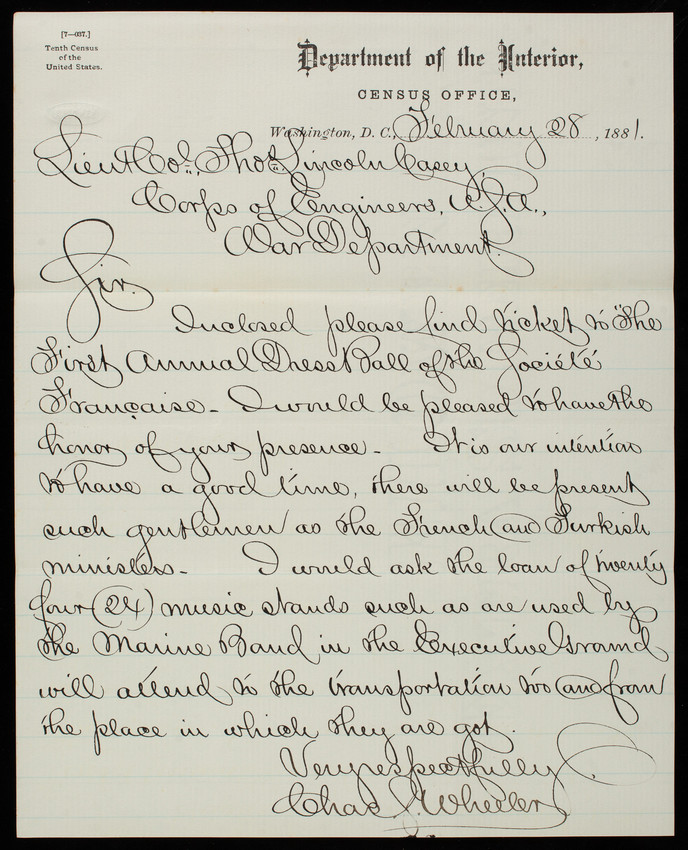 [7—037.]
Tenth Census
of the
United States.
Department of the Interior,
CENSUS OFFICE,
Washington, D. C., February 28, 1881.
Lieut Col., Thos. Lincoln Casey,
Corps of Engineers, U.S.A.,
War Department.
Sir.
Inclosed please find ticket to "the
First Annual Dress Ball of the Société
Française - I would be pleased to have the
honor of your presence - It is our intention
to have a good time, there will be present
such gentlemen as the French and Turkish
ministers - I would ask the loan of twenty
four (24) music stands such as are used by
the Marine Band in the Executive Ground
will attend to the transportation to and from
the place in which they are got.
Very respectfully
Chas J. Wheeler